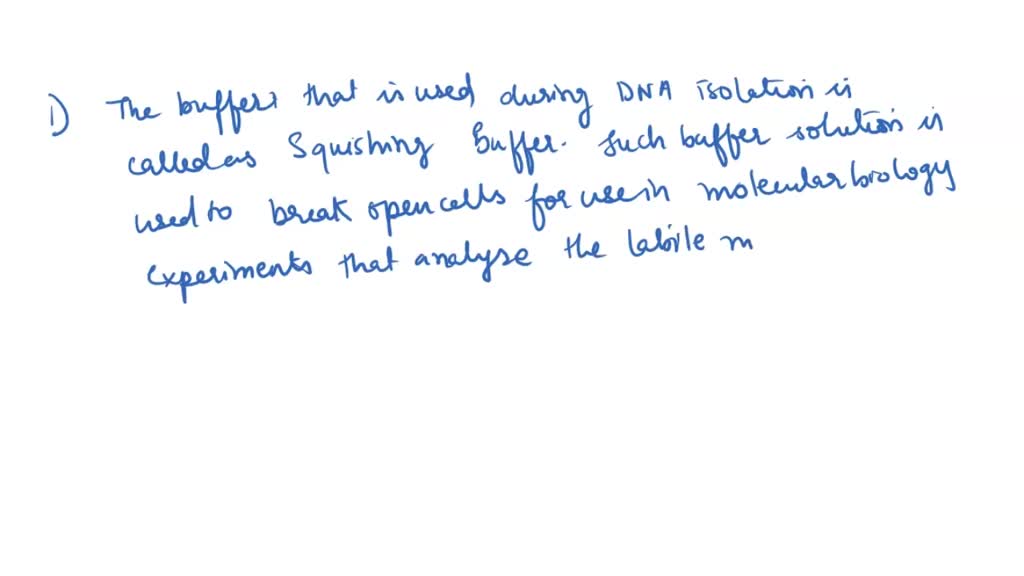 1) The buffers that is used during DNA isolation is
called as Squishing Buffer. Such buffer solution is
used to break open cells for use in molecular biology
experiments that analyse the labile m